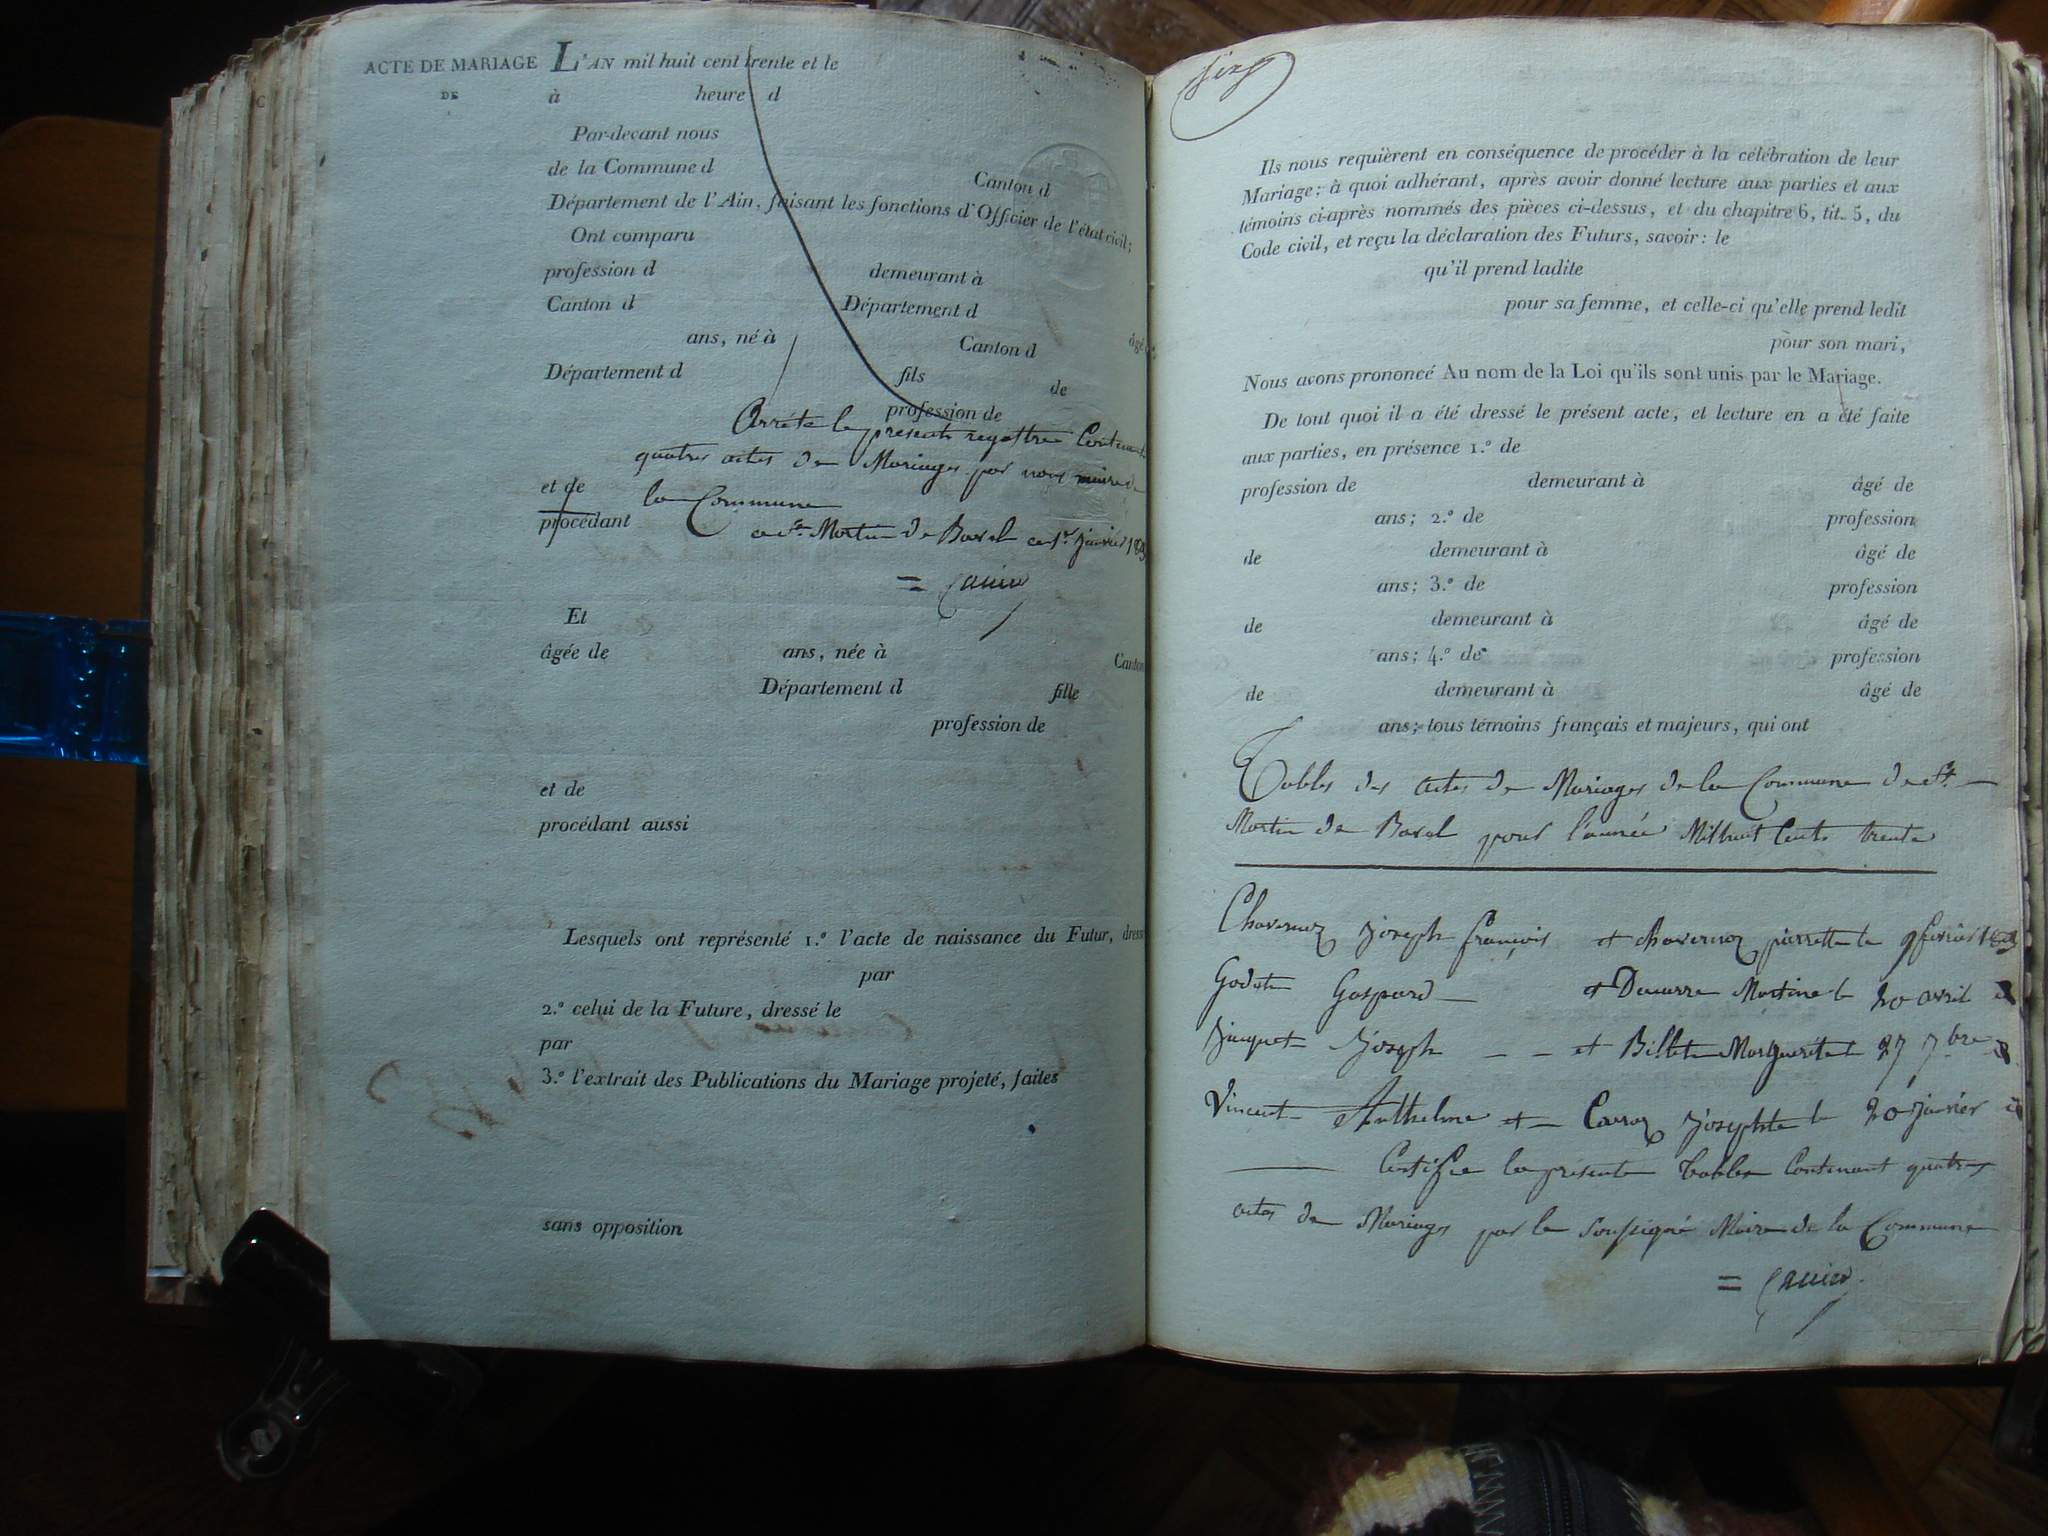 ACTE DE MARIAGE L'AN mil huit cent trente et le
DE à heure d
Par-devant nous
de la Commune d Canton d
Département de l'Ain, faisant les fonctions d'Officier de l'état civil;
Ont comparu
profession d demeurant à
Canton d Département d âgé
ans, né à Canton d
Département d fils de
profession de
Arrété le presentregettree Contenant
quatres actes de Mariages par nous maire de
et de la Commune
procédant a St. Martin de Bavel ce 1er janvier
=
Et
âgée de ans, née à Canton
Département d fille
profession de
et de
procédant aussi
Lesquels ont représenté 1.º l'acte de naissance du Futur, dress
par
2.º celui de la Future, dressé le
par
3.º l'extrait des Publications du Mariage projeté, faites
sans opposition
Ils nous requièrent en conséquence de procéder à la célébration de leur
Mariage; à quoi adhérant, après avoir donné lecture aux parties et aux
témoins ci-après nommés des pièces ci-dessus, et du chapitre 6, tit. 5, du
Code civil, et reçu la déclaration des Futurs, savoir: le
qu'il prend ladite
pour sa femme, et celle-ci qu'elle prend ledit
pour son mari,
Nous avons prononcé Au nom de la Loi qu'ils sont unis par le Mariage.
De tout quoi il a été dressé le présent acte, et lecture en a été faite
aux parties, en présence 1.º de
profession de demeurant à âgé de
ans; 2.º de profession
de demeurant à âgé de
ans; 3.º de profession
de demeurant à âgé de
ans; 4.º de profession
de demeurant à âgé de
ans; tous témoins français et majeurs, qui ont
Tables des actes de Mariages de la Commune de St.
Martin de Bavel pour l'année Mil huit Cents trente
Chavernoz Joseph françois et chavernoz pierrette le 9 février
Godet Gaspard et Ducarre Martine le 20 avril
Juquet Joseph - - et Billet Marguerite le 27 7bre
Vincent Anthelme et Carroz Josephte le 20 janvier
Certifie la présente Tables Contenant quatres
actes de Mariages par le Soussigné Maire de la Commune
=